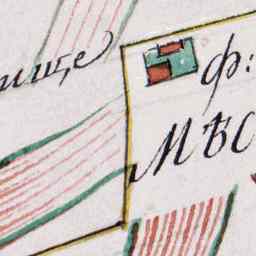 ище
ф:
Мѣс